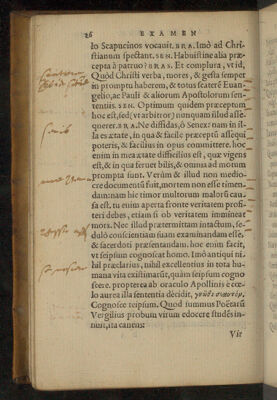 26 EXAMEN
lo Scapucinos vocauit. BRA. Imò ad Chri
stianum spectant. SEN. Habuistine alia præ
cepta à patruo? BRAS. Et complura, vt id,
Quòd Christi verba, mores, & gesta semper
in promptu haberem, & totus scaterē Euan-
gelio, ac Pauli & aliorum Apostolorum sen-
tentiis. SEN. Optimum quidem præceptum
hoc est, sed (vt arbitror) nunquam illud asse-
querer. BRA. Ne diffidas, ô Senex: nam in si-
la ætate, in qua & facile præceptū assequi
poteris, & facilius in opus committere. hoc
enim in mea ætate difficilius est, quæ vigens
est, & in qua feruet bilis, & omnia ad motum
prompta sunt. Verùm & illud non medio-
cre documentū fuit, mortem non esse timen-
dam: nam hic timor multorum malorū cau-
sa est. tu enim aperta fronte veritatem profi-
teri debes, etiam si ob veritatem immineat
mors. Nec illud prætermittam intactum, se-
dulò conscientiam suam examinandam esse,
& sacerdoti præsentandam. hoc enim facit,
vt seipsum cognoscat homo. Imò antiqui ni-
hil præclarius, nihil excellentius in tota hu-
mana vita existimarūt, quàm seipsum cogno
scere. propterea ab oraculo Apollinis è cœ-
lo aurea illa sententia decidit, γνῶθι σεαυτόν,
Cognosce teipsum. Quod summus Poëtarū
Vergilius probum virum edocere studēs in-
nuit, ita canens:
Vir